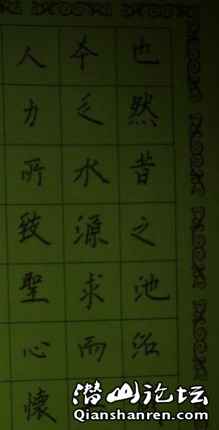 也然昔之池沼
本乏水源求而
人力所致聖心懷
潜山论坛
Qianshanren.com